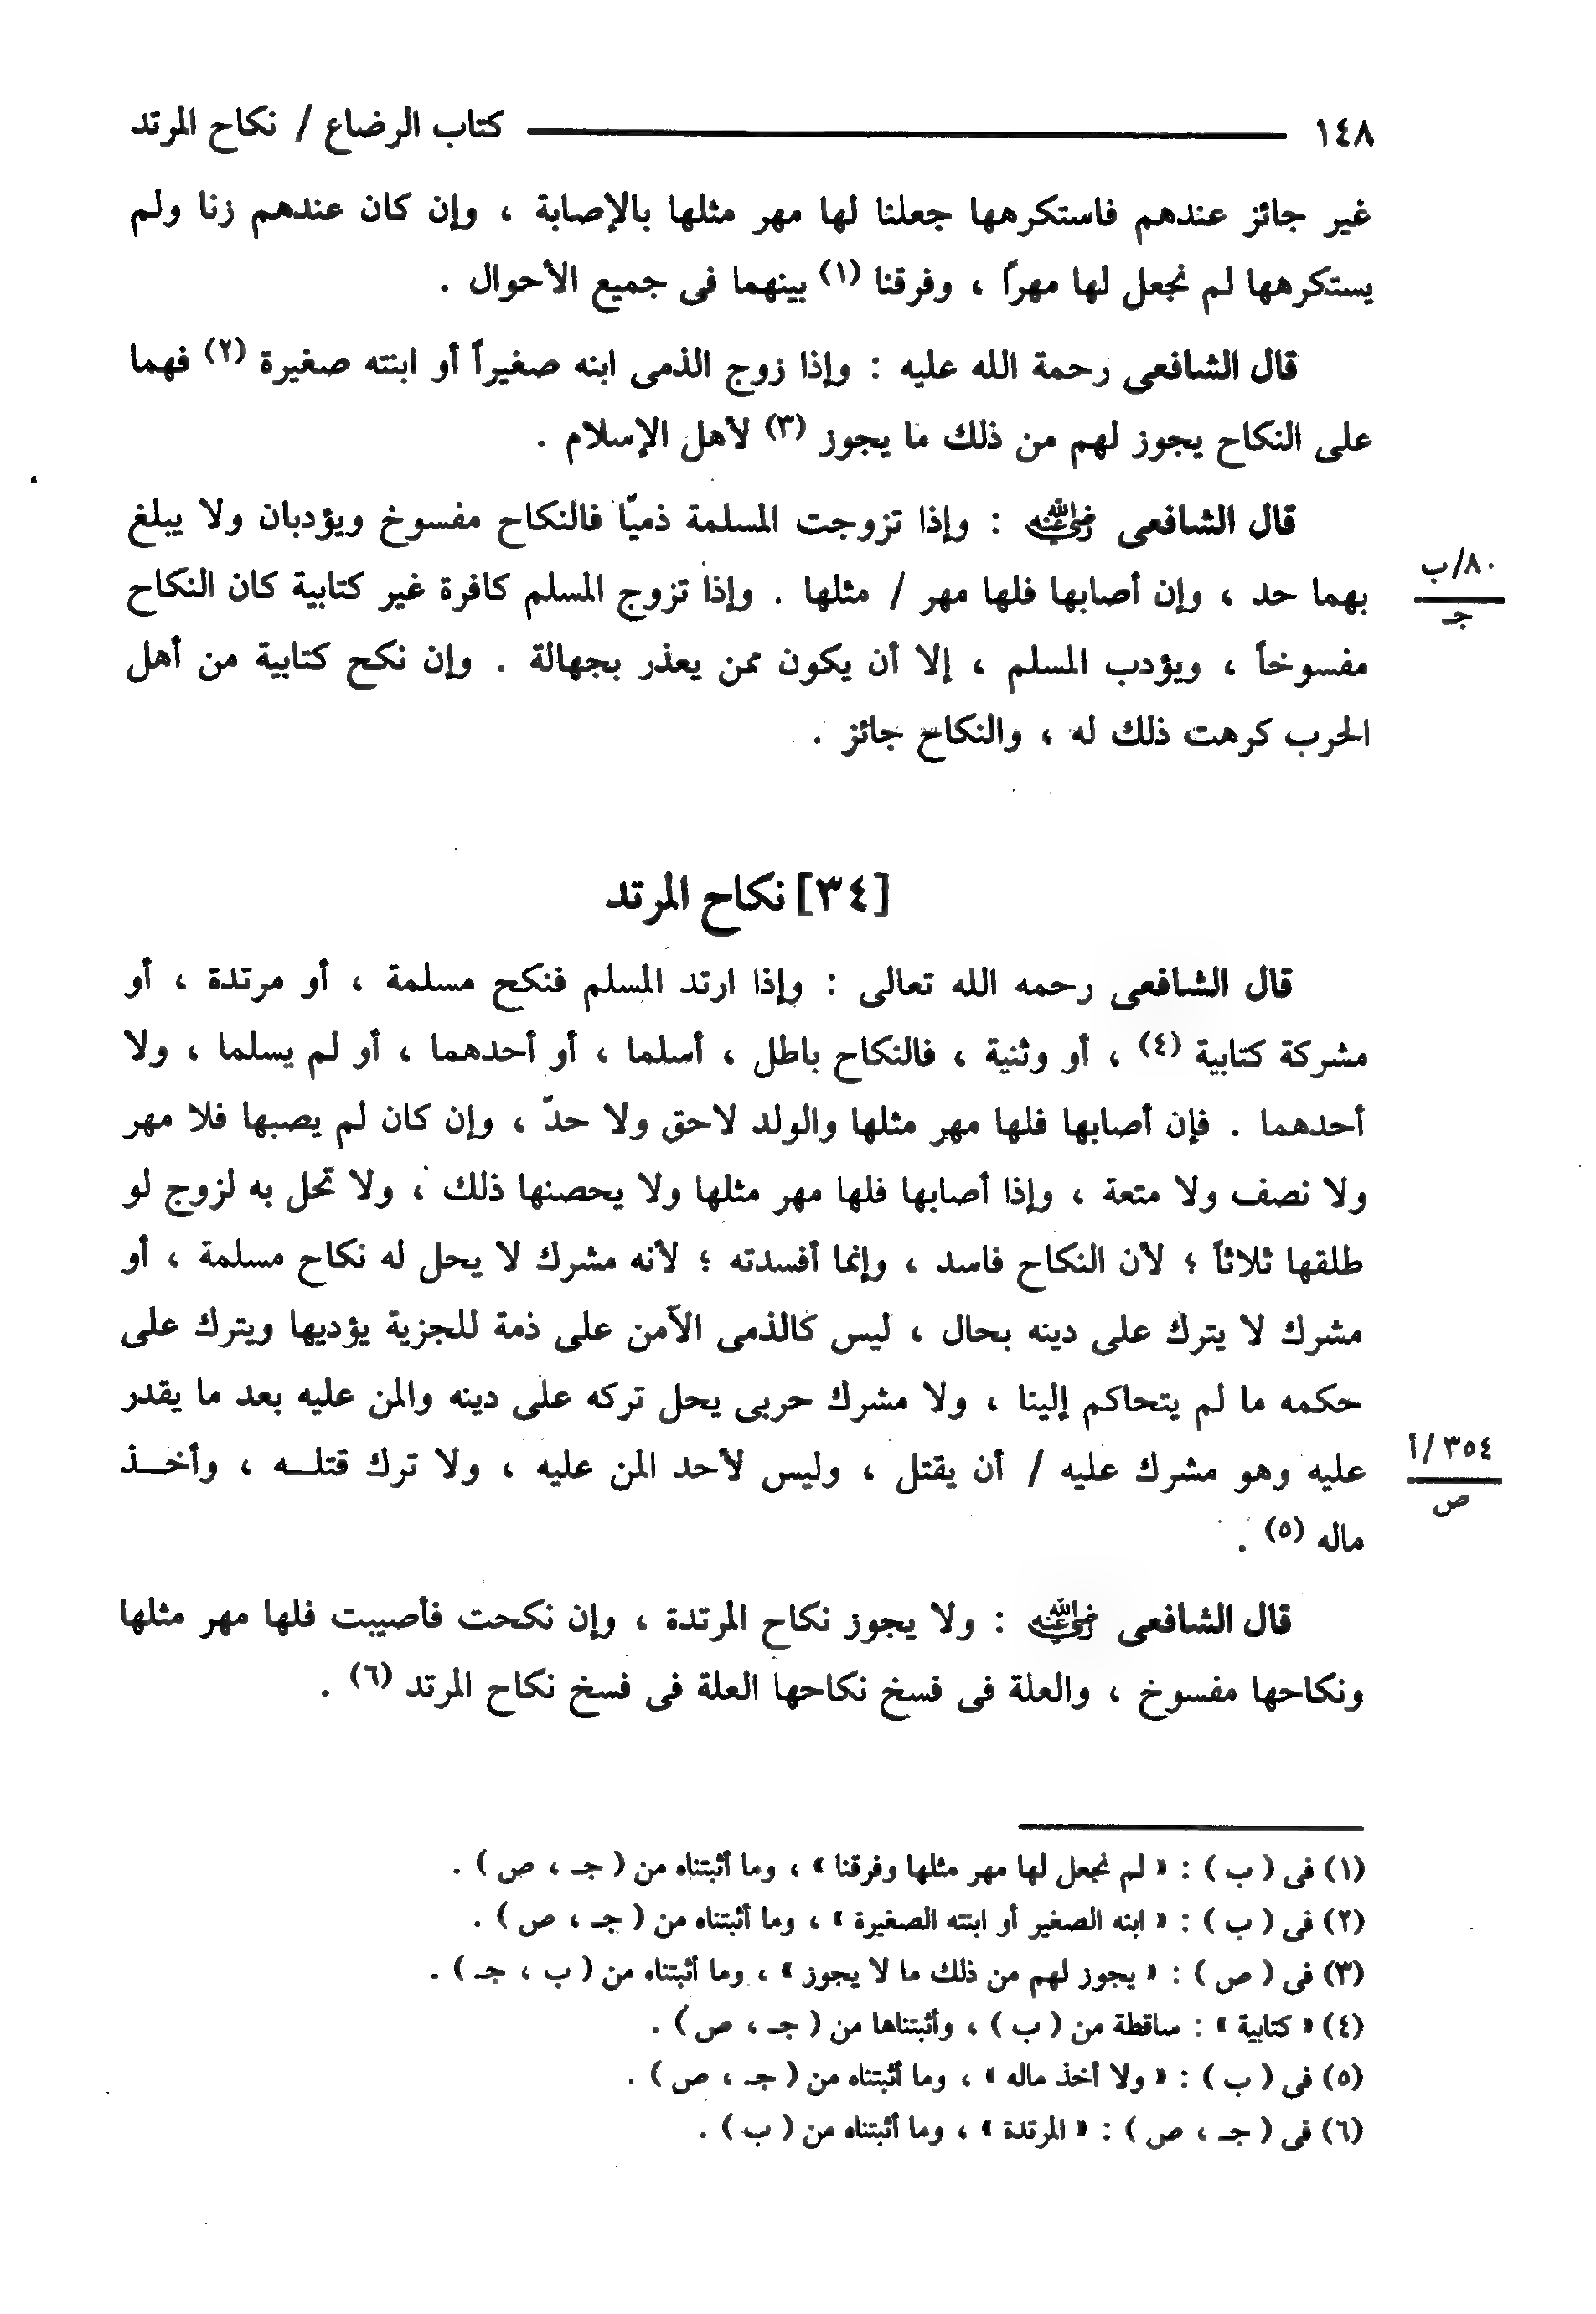 ١٤٨ كتاب الرضاع / نكاح المرتد
غير جائز عندهم فاستكرهها جعلنا لها مهر مثلها بالإصابة ، وإن كان عندهم زنا ولم
يستكرهها لم نجعل لها مهراً ، وفرقنا (١) بينهما فى جميع الأحوال .
قال الشافعى رحمة الله عليه : وإذا زوج الذمى ابنه صغيراً أو ابنته صغيرة (٢) فهما
على النكاح يجوز لهم من ذلك ما يجوز (٣) لأهل الإسلام .
قال الشافعى رضي الله عنه : وإذا تزوجت المسلمة ذميّا فالنكاح مفسوخ ويؤدبان ولا يبلغ
بهما حد ، وإن أصابها فلها مهر / مثلها . وإذا تزوج المسلم كافرة غير كتابية كان النكاح
٨٠/ب
جـ
مفسوخاً ، ويؤدب المسلم ، إلا أن يكون ممن يعذر بجهالة . وإن نكح كتابية من أهل
الحرب كرهت ذلك له ، والنكاح جائز .
[٣٤] نكاح المرتد
قال الشافعى رحمه الله تعالى : وإذا ارتد المسلم فنكح مسلمة ، أو مرتدة ، أو
مشركة كتابية (٤) ، أو وثنية ، فالنكاح باطل ، أسلما ، أو أحدهما ، أو لم يسلما ، ولا
أحدهما . فإن أصابها فلها مهر مثلها والولد لاحق ولا حدّ ، وإن كان لم يصبها فلا مهر
ولا نصف ولا متعة ، وإذا أصابها فلها مهر مثلها ولا يحصنها ذلك ، ولا تحل به لزوج لو
طلقها ثلاثاً ؛ لأن النكاح فاسد ، وإنما أفسدته ؛ لأنه مشرك لا يحل له نكاح مسلمة ، أو
مشرك لا يترك على دينه بحال ، ليس كالذمى الآمن على ذمة للجزية يؤديها ويترك على
حكمه ما لم يتحاكم إلينا ، ولا مشرك حربى يحل تركه على دينه والمن عليه بعد ما يقدر
عليه وهو مشرك عليه / أن يقتل ، وليس لأحد المن عليه ، ولا ترك قتلـه ، وأخـذ
٣٥٤/أ
ص
ماله (٥) .
قال الشافعى رضي الله عنه : ولا يجوز نكاح المرتدة ، وإن نكحت فأصيبت فلها مهر مثلها
ونكاحها مفسوخ ، والعلة فى فسخ نكاحها العلة فى فسخ نكاح المرتد (٦) .
(١) فى ( ب ) : « لم نجعل لها مهر مثلها وفرقنا » ، وما أثبتناه من ( جـ ، ص ) .
(٢) فى ( ب ) : « ابنه الصغير أو ابنته الصغيرة » ، وما أثبتناه من ( جـ ، ص ) .
(٣) فى ( ص ) : « يجوز لهم من ذلك ما لا يجوز » ، وما أثبتناه من ( ب ، جـ ) .
(٤) « كتابية » : ساقطة من ( ب ) ، وأثبتناها من ( جـ ، ص ) .
(٥) فى ( ب ) : « ولا أخذ ماله » ، وما أثبتناه من ( جـ ، ص ) .
(٦) فى ( جـ ، ص ) : « المرتدة » ، وما أثبتناه من ( ب ) .